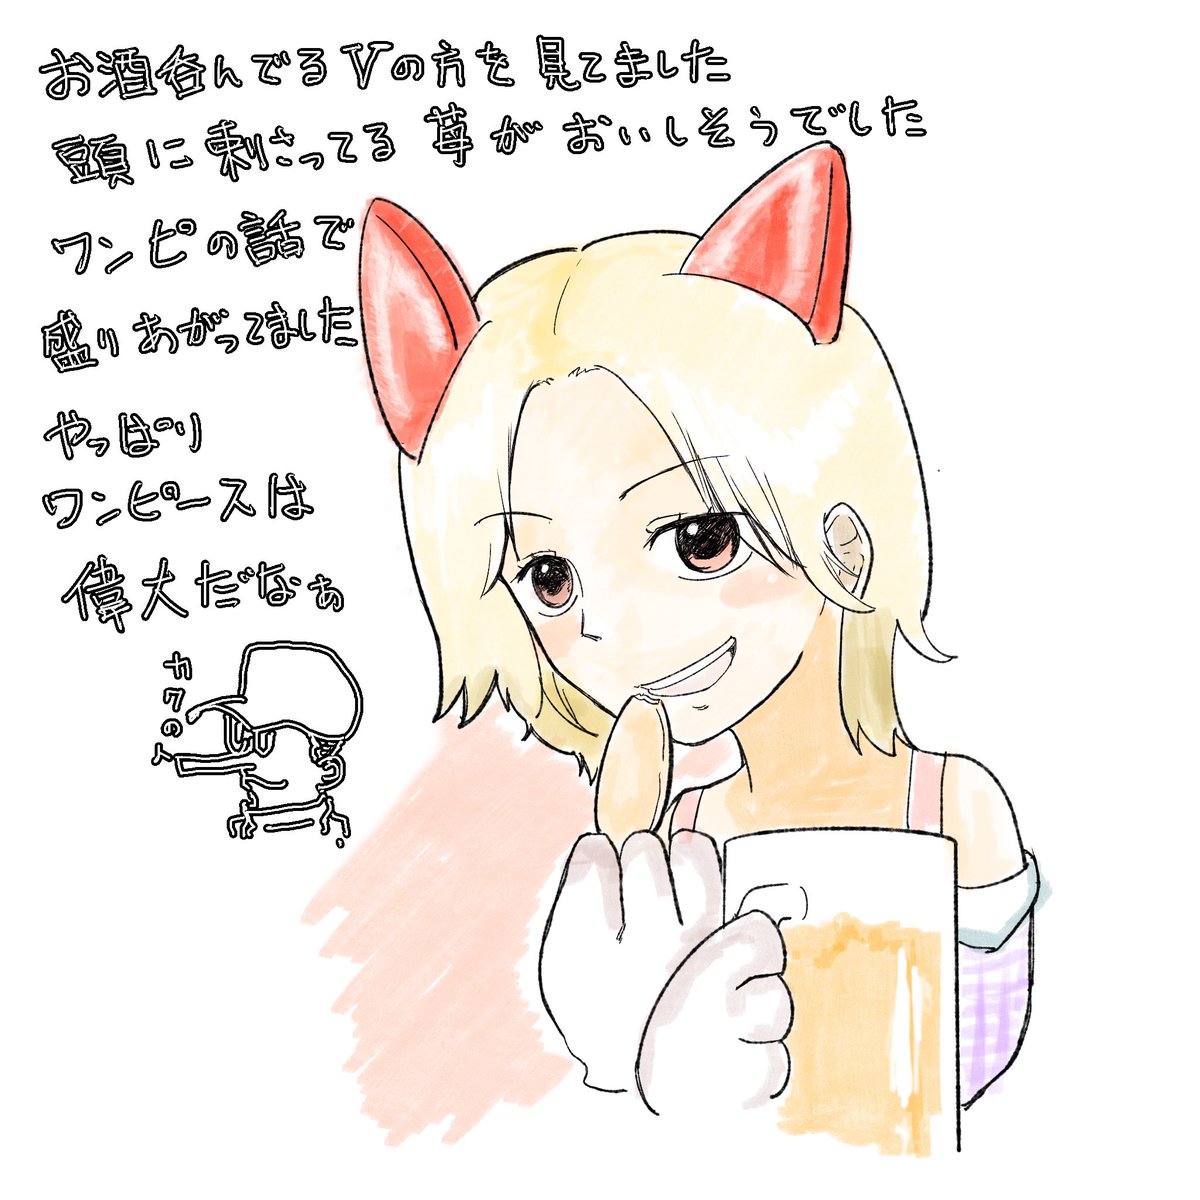 お酒呑んでるVの方を見てました
頭に刺さってる苺がおいしそうでした
ワンピの話で
盛りあがってました
やっぱり
ワンピースは
偉大だなぁ
カクの人